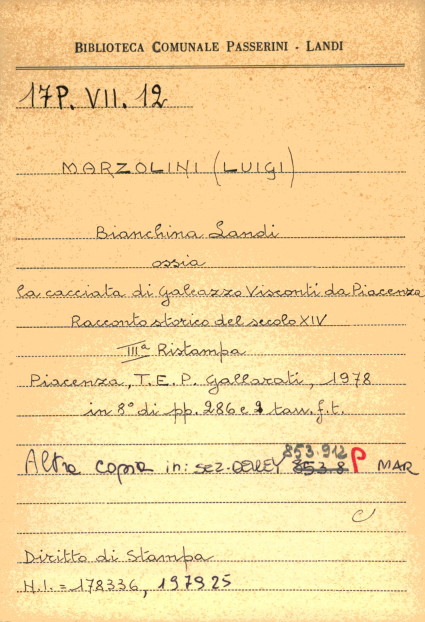 BIBLIOTECA COMUNALE PASSERINI - LANDI
17P. VII. 12
MARZOLINI (LUIGI)
Bianchina Landi
ossia
la cacciata di Galeazzo Visconti da Piacenza
Racconto storico del secolo XIV
IIIª Ristampa
Piacenza, T.E.P. Gallarati, 1978
in 8° di pp. 286 e 2 tav. f.t.
853.912
Altra copia in: SEZ. 853.8 P MAR
C
Diritto di Stampa
N.I. = 178336, 197925